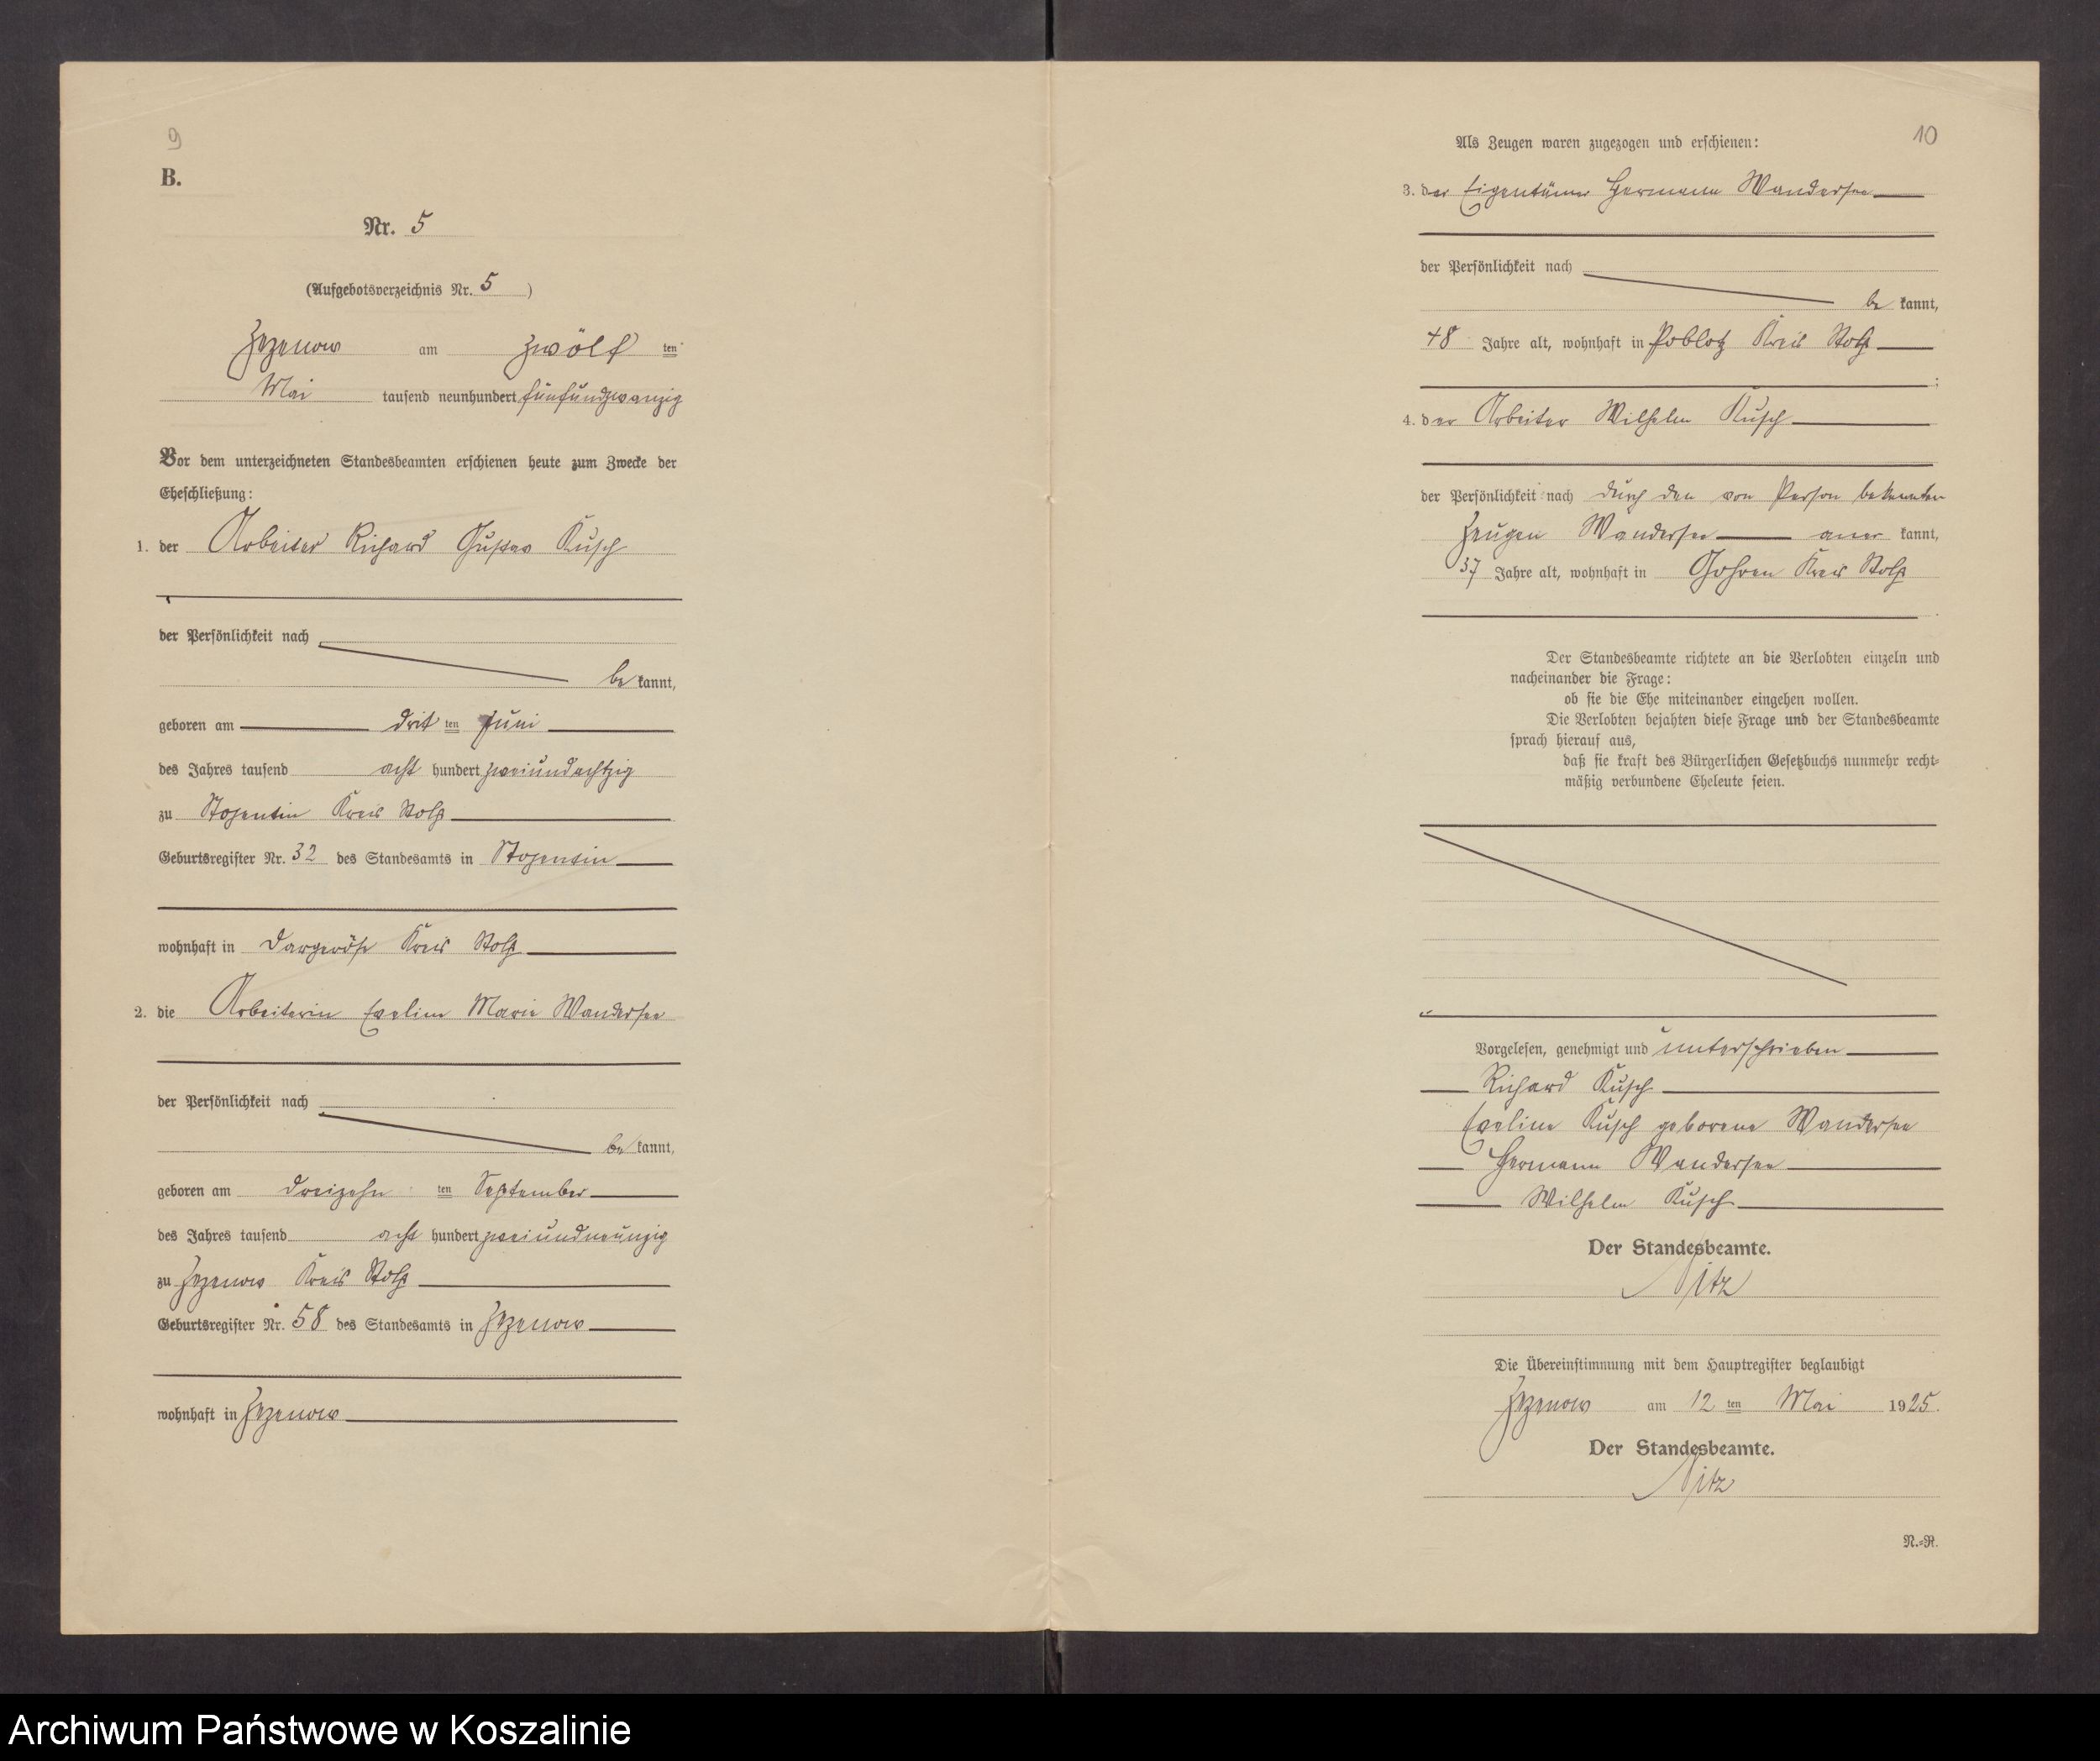 9
B.
Nr. 5
(Aufgebotsverzeichnis Nr. 5)
Zezenow am zwölf ten
Mai tausend neunhundert fünfundzwanzig
Vor dem unterzeichneten Standesbeamten erschienen heute zum Zwecke der
Eheschließung:
1. der Arbeiter Richard Gustav Kusch
der Persönlichkeit nach
be kannt,
geboren am drit ten Juni
des Jahres tausend acht hundert zweiundachtzig
zu Stojentin Kreis Stolp
Geburtsregister Nr. 32 des Standesamts in Stojentin
wohnhaft in Dargeröse Kreis Stolp
2. die Arbeiterin Eveline Marie Wandersee
der Persönlichkeit nach
be kannt,
geboren am dreizehn ten September
des Jahres tausend acht hundert zweiundneunzig
zu Zezenow Kreis Stolp
Geburtsregister Nr. 58 des Standesamts in Zezenow
wohnhaft in Zezenow
10
Als Zeugen waren zugezogen und erschienen:
3. der Eigentümer Hermann Wandersee
der Persönlichkeit nach
be kannt,
48 Jahre alt, wohnhaft in Poblotz Kreis Stolp
;
4. der Arbeiter Wilhelm Kusch
der Persönlichkeit nach durch den von Person bekannten
Zeugen Wandersee aner kannt,
37 Jahre alt, wohnhaft in Gohren Kreis Stolp
.
Der Standesbeamte richtete an die Verlobten einzeln und
nacheinander die Frage:
ob sie die Ehe miteinander eingehen wollen.
Die Verlobten bejahten diese Frage und der Standesbeamte
sprach hierauf aus,
daß sie kraft des Bürgerlichen Gesetzbuchs nunmehr recht-
mäßig verbundene Eheleute seien.
Vorgelesen, genehmigt und unterschrieben
Richard Kusch
Eveline Kusch geborene Wandersee
Hermann Wandersee
Wilhelm Kusch
Der Standesbeamte.
Nitz
Die Übereinstimmung mit dem Hauptregister beglaubigt
Zezenow am 12 ten Mai 1925.
Der Standesbeamte.
Nitz
N.-R.
Archiwum Państwowe w Koszalinie